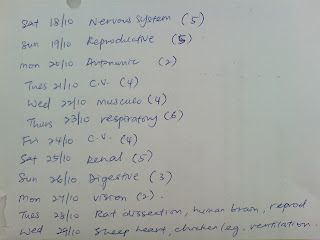 Sat 18/10 Nervous System (5)
Sun 19/10 Reproductive (5)
Mon 20/10 Autonomic (2)
Tues 21/10 C.V. (4)
Wed 22/10 Musculo (4)
Thurs 23/10 respiratory (6)
Fri 24/10 C.V. (4)
Sat 25/10 Renal (5)
Sun 26/10 Digestive (3)
Mon 27/10 Vision (2).
Tues 28/10 Rat dissection, human brain, reprod
Wed 29/10 Sheep heart, chicken leg, ventilation.